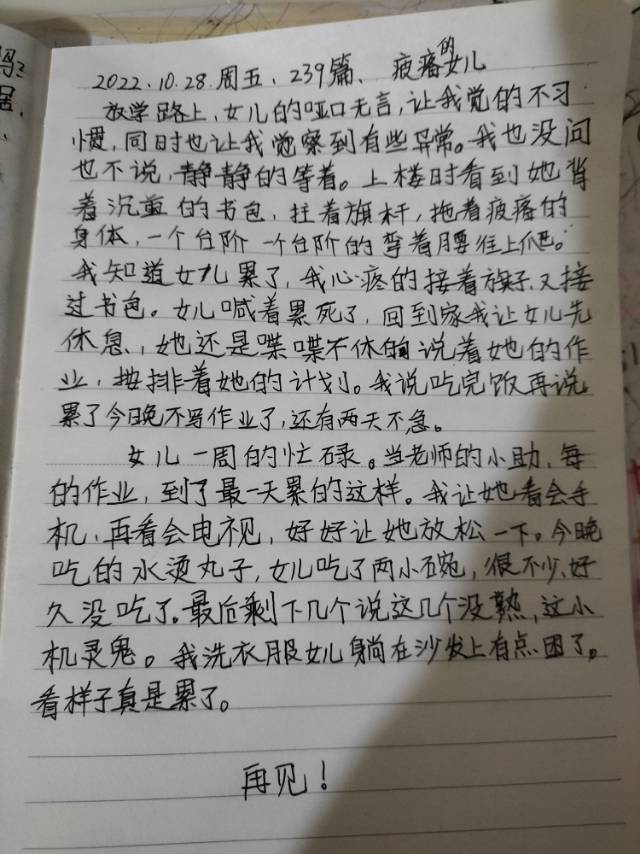 2022.10.28.周五.239篇、疲痛的女儿
放学路上,女儿的哑口无言,让我觉的不习
惯,同时也让我觉察到有些异常。我也没问
也不说,静静的等着。上楼时看到她背
着沉重的书包,拄着旗杆,拖着疲痛的
身体,一个台阶一个台阶的弯着腰往上爬。
我知道女儿累了,我心疼的接着旗子又接
过书包。女儿喊着累死了,回到家我让女儿先
休息,她还是喋喋不休的说着她的作
业,按排着她的计划。我说吃完饭再说
累了今晚不写作业了,还有两天不急。
女儿一周的忙碌。当老师的小助,每
的作业,到了最一天累的这样。我让她看会手
机,再看会电视,好好让她放松一下。今晚
吃的水烫丸子,女儿吃了两小碗,很不少,好
久没吃了。最后剩下几个说这几个没熟,这小
机灵鬼。我洗衣服女儿躺在沙发上有点困了。
看样子真是累了。
再见!